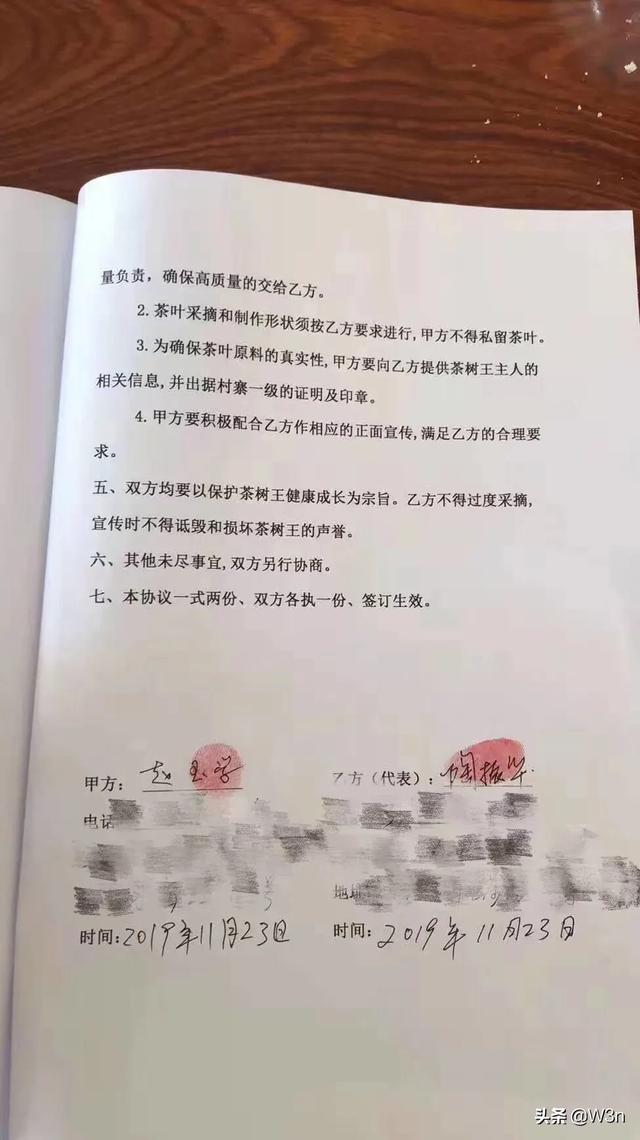 量负责，确保高质量的交给乙方。
2.茶叶采摘和制作形状须按乙方要求进行,甲方不得私留茶叶。
3.为确保茶叶原料的真实性,甲方要向乙方提供茶树王主人的
相关信息,并出据村寨一级的证明及印章。
4.甲方要积极配合乙方作相应的正面宣传,满足乙方的合理要
求。
五、双方均要以保护茶树王健康成长为宗旨。乙方不得过度采摘,
宣传时不得诋毁和损坏茶树王的声誉。
六、其他未尽事宜,双方另行协商。
七、本协议一式两份、双方各执一份、签订生效。
甲方：赵玉学
乙方（代表）：陶振华
电话
地址
时间:2019年11月23日
时间：2019年11月23日
头条 @W3n